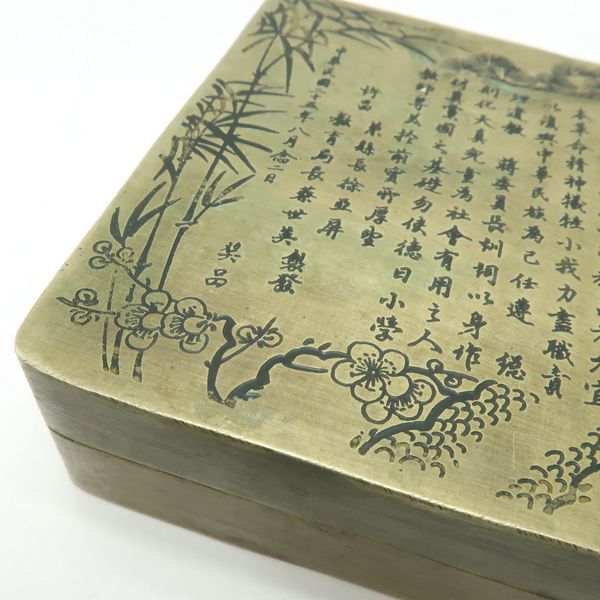 本革命精神犧牲小我力盡職責
復興中華民族為己任遵 總
理遺教 蔣委員長訓詞以身作
則化天真兒童為社會有用之人
國之基礎勿使德日小學
教師專美於前實所厚望
縣長徐亞屏
教育局長蔡世英製發
中華民國二十五年八月念二日
奖品